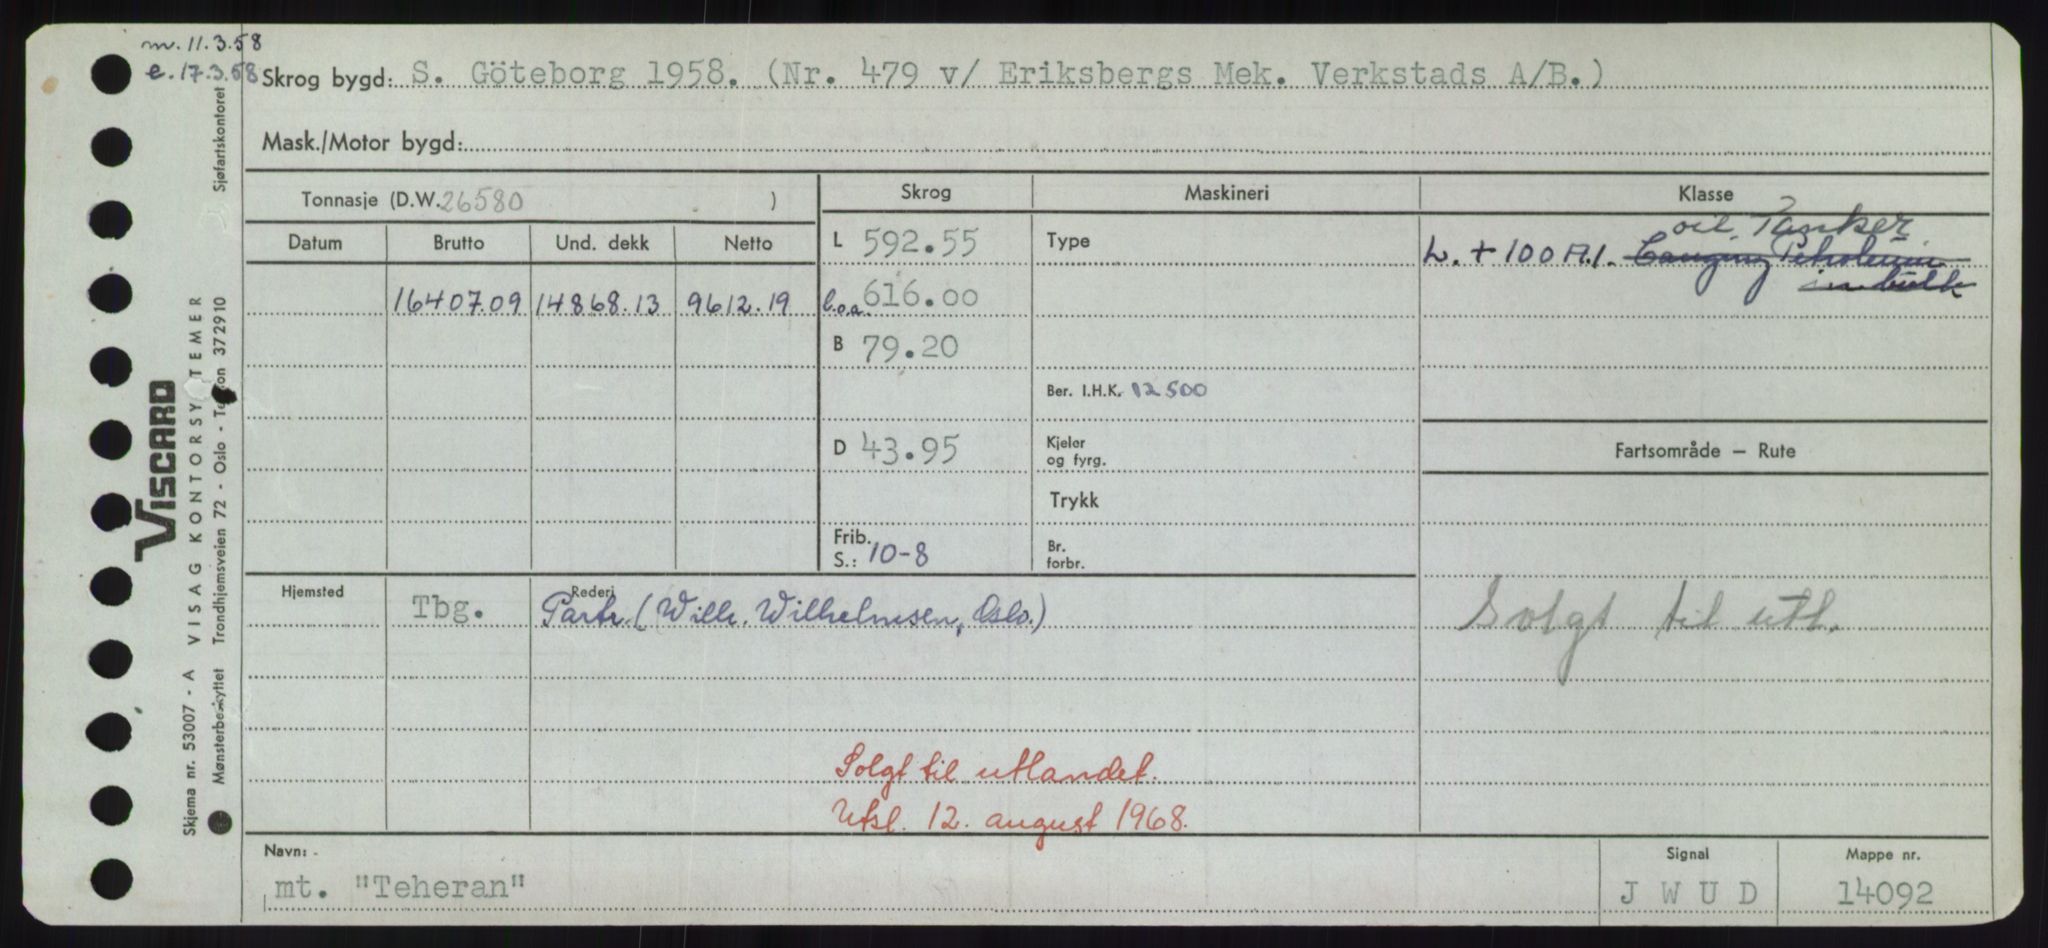 m. 11.3.58
e. 17.3.58
Skrog bygd: S. Göteborg 1958. (Nr. 479 v/ Eriksbergs Mek. Verkstads A/B.)
Mask./Motor bygd:
Tonnasje (D.W. 26580 )
Skrog
Maskineri
Klasse
Datum Brutto Und. dekk Netto
16407.09 14868.13 9612.19
L 592.55
l.o.a. 616.00
B 79.20
D 43.95
Frib. S.: 10-8
Type
Ber. I.H.K. 12500
Kjeler
og fyrg.
Trykk
Br.
forbr.
oil Tanker
L. + 100 A.1. Carrying Petroleum
in bulk
Fartsområde — Rute
Solgt til utl.
Hjemsted
Tbg.
Rederi
Partr. (Wilh. Wilhelmsen, Oslo.)
Solgt til utlandet.
Utsl. 12. august 1968.
Navn:
mt. "Teheran"
Signal
J W U D
Mappe nr.
14092
Skjema nr. 53007 - A VISAG KONTORSYSTEMER
VISCARD
Mønsterbeskyttet Trondhjemsveien 72 - Oslo - Telefon 372910 Sjøfartskontoret